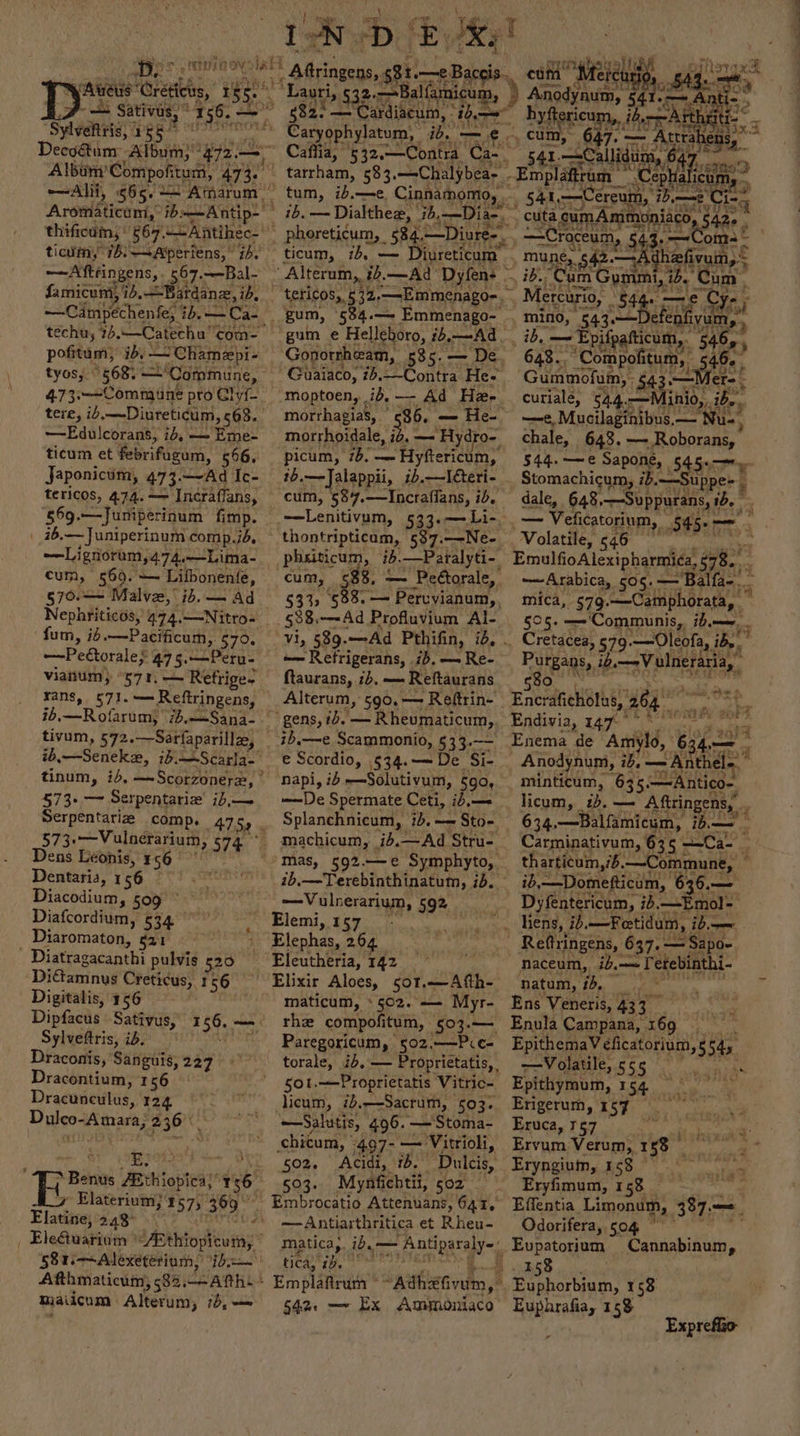 INDEX.
D.
DAucus Creticus, 155.
— Sativus, 156. —
Sylvestris, 155
Decoctum Album, 472.—
Album Compositum, 473.
—Alii, 565. — Amarum
Aromaticum, ib.—Antip-
thisicum, 567.—Antihec-
ticum, ib.—Aperiens, ib.
—Aſtringens, 567.—Bal-
ſamicum, ib.—Bardanæ, ib.
—Campechenſe, ib.— Ca-
techu, ib.—Catechu com-
poſitum, ib. — Chamæpi-
tyos, 568. —Commune,
473.—Commune pro Clyſ-
tere, ib.—Diureticum, 568.
—Edulcorans, ib. — Eme-
ticum et febrifugum, 566.
Japonicum, 473.—Ad Ic-
tericos, 474. — Incraſſans,
569.—Juniperinum ſimp.
ib.—Juniperinum comp. ib.
—Lignorum, 474.—Lima-
cum, 569. — Liſbonenſe,
570.— Malvæ, ib. — Ad
Nephriticos, 474.—Nitro-
ſum, ib.—Pacificum, 570.
—Pectorale, 475.—Peru-
vianum, 571. — Refrige-
rans, 571. — Reſtringens,
ib.—Roſarum, ib.—Sana-
tivum, 572.—Sarſaparillæ,
ib.—Senekæ, ib.—Scarla-
tinum, ib. —Scorzoneræ,
573. — Serpentariæ ib.—
Serpentariæ comp. 475,
573.—Vulnerarium, 574
Dens Leonis, 156
Dentaria, 156
Diacodium, 509
Diaſcordium, 534
Diaromaton, 521
Diatragacanthi pulvis 520
Dictamnus Creticus, 156
Digitalis, 156
Dipſacus Sativus, 156. —
Sylveſtris, ib.
Draconis, Sanguis, 227
Dracontium, 156
Dracunculus, 124
Dulco-Amara, 236
E.
EBenus Æthiopica, 156
Elaterium, 157, 369
Elatine, 248
Electuarium Æthiopicum,
581.—Alexeterium, ib.—
Aſthmaticum, 582.—Aſth-
maticum Alterum, ib. —
Aſtringens, 581.—e Baccis
Lauri, 532.—Balſamicum,
582. — Cardiacum, ib.—
Caryophylatum, ib. — e
Caſſia, 532.—Contra Ca-
tarrham, 583.—Chalybea-
tum, ib.—e Cinnamomo,
ib. — Dialtheæ, ib.—Dia-
phoreticum, 584.—Diure-
ticum, ib. — Diureticum
Alterum, ib.—Ad Dyſen-
tericos, 532.—Emmenago-
gum, 584.— Emmenago-
gum e Helleboro, ib.—Ad
Gonorrhœam, 585. — De
Guaiaco, ib.—Contra He-
moptoen, ib. — Ad Hæ-
morrhagias, 586. — He-
morrhoidale, ib. — Hydro-
picum, ib. — Hyſtericum,
ib.—Jalappii, ib.—Icteri-
cum, 587.—Incraſſans, ib.
—Lenitivum, 533.— Li-
thontripticum, 587.—Ne-
phriticum, ib.—Paralyti-
cum, 588. — Pectorale,
533, 588. — Peruvianum,
588.—Ad Profluvium Al-
vi, 589.—Ad Pthiſin, ib.
— Refrigerans, ib. — Re-
ſtaurans, ib. — Reſtaurans
Alterum, 590.— Reſtrin-
gens, ib. — Rheumaticum,
ib.—e Scammonio, 533.—
e Scordio, 534. — De Si-
napi, ib —Solutivum, 590.
—De Spermate Ceti, ib.—
Splanchnicum, ib. — Sto-
machicum, ib.—Ad Stru-
mas, 592.—e Symphyto,
ib.—Terebinthinatum, ib.
—Vulnerarium, 592
Elemi, 157
Elephas, 264
Eleutheria, 142
Elixir Aloes, 501.—Aſth-
maticum, 502. — Myr-
rhæ compoſitum, 503.—
Paregoricum, 502.—Pec-
torale, ib. — Proprietatis,
501.—Proprietatis Vitrio-
licum, ib.—Sacrum, 503.
—Salutis, 496. — Stoma-
chicum, 497. — Vitrioli,
502. Acidi, ib. Dulcis,
503. Mynſichtii, 502
Embrocatio Attenuans, 641.
—Antiarthritica et Rheu-
matica, ib.— Antiparaly-
tica, ib.
Emplaſtrum Adhæſivum,
542. — Ex Ammoniaco
cum Mercurio, 543.—
Anodynum, 541.— Anti-
hyſtericum, ib.—Arthriti-
cum, 647. — Attrahens,
541.—Callidum, 647
Emplaſtrum Cephalicum,
541.—Cereum, ib.—e Ci-
cuta cum Ammoniaco, 542.
—Croceum, 543.—Com-
mune, 542.—Adhæſivum,
ib. Cum Gummi, ib. Cum
Mercurio, 544. — e Cy-
mino, 543.—Defenſivum,
ib. — Epiſpaſticum, 546,
648. Compoſitum, 546.
Gummoſum, 543.—Mer-
curiale, 544.—Minio, ib.
—e Mucilaginibus.— Nu-
chale, 648. — Roborans,
544. — e Sapone, 545.—
Stomachicum, ib.—Suppe-
dale, 648.—Suppurans, ib.
— Veſicatorium, 545. —
Volatile, 546
Emulſio Alexipharmica, 578.
—Arabica, 505. — Balſa-
mica, 579.—Camphorata,
505. — Communis, ib.—
Cretacea, 579.—Oleoſa, ib.
Purgans, ib.—Vulneraria,
580
Encraſicholus, 264
Endivia, 147
Enema de Amylo, 634.—
Anodynum, ib. — Anthel-
minticum, 635.—Antico-
licum, ib. — Aſtringens,
634.—Balſamicum, ib.—
Carminativum, 635 —Ca-
tharticum, ib.—Commune,
ib.—Domeſticum, 636.—
Dyſentericum, ib.—Emol-
liens, ib.—Fœtidum, ib.—
Reſtringens, 637. — Sapo-
naceum, ib.— Terebinthi-
natum, ib.
Ens Veneris, 433
Enula Campana, 169
Epithema Veſicatorium, 554,
—Volatile, 555
Epithymum, 154
Erigerum, 157
Eruca, 157
Ervum Verum, 158
Eryngium, 158
Eryſimum, 158
Eſſentia Limonum, 387.—
Odorifera, 504
Eupatorium Cannabinum,
158
Euphorbium, 158
Euphraſia, 158
Expreſſio